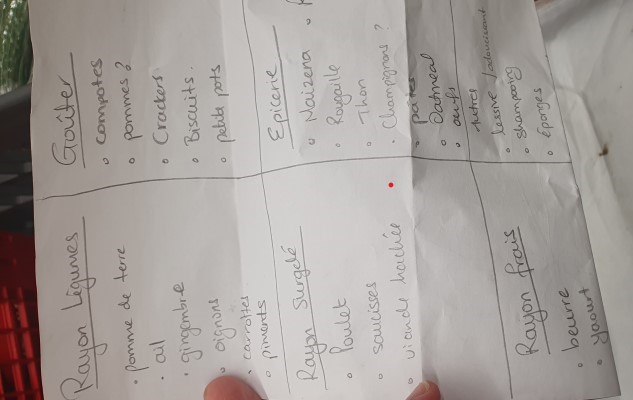 Rayon Légumes
• pomme de terre
• ail
• gingembre
• oignons
• carottes
• piments
Goûter
• compotes
• pommes ?
• Crackers
• Biscuits.
• petits pots
Rayon Surgelé
• Poulet
• saucisses
• viande hachée
Epicerie
• Maïzena
• Rougaille
• Thon
• Champignons ?
• Oatmeal
• œufs
Autres
• lessive / adoucissant
• shampooing
• Éponges
Rayon frais
• beurre
• yaourt